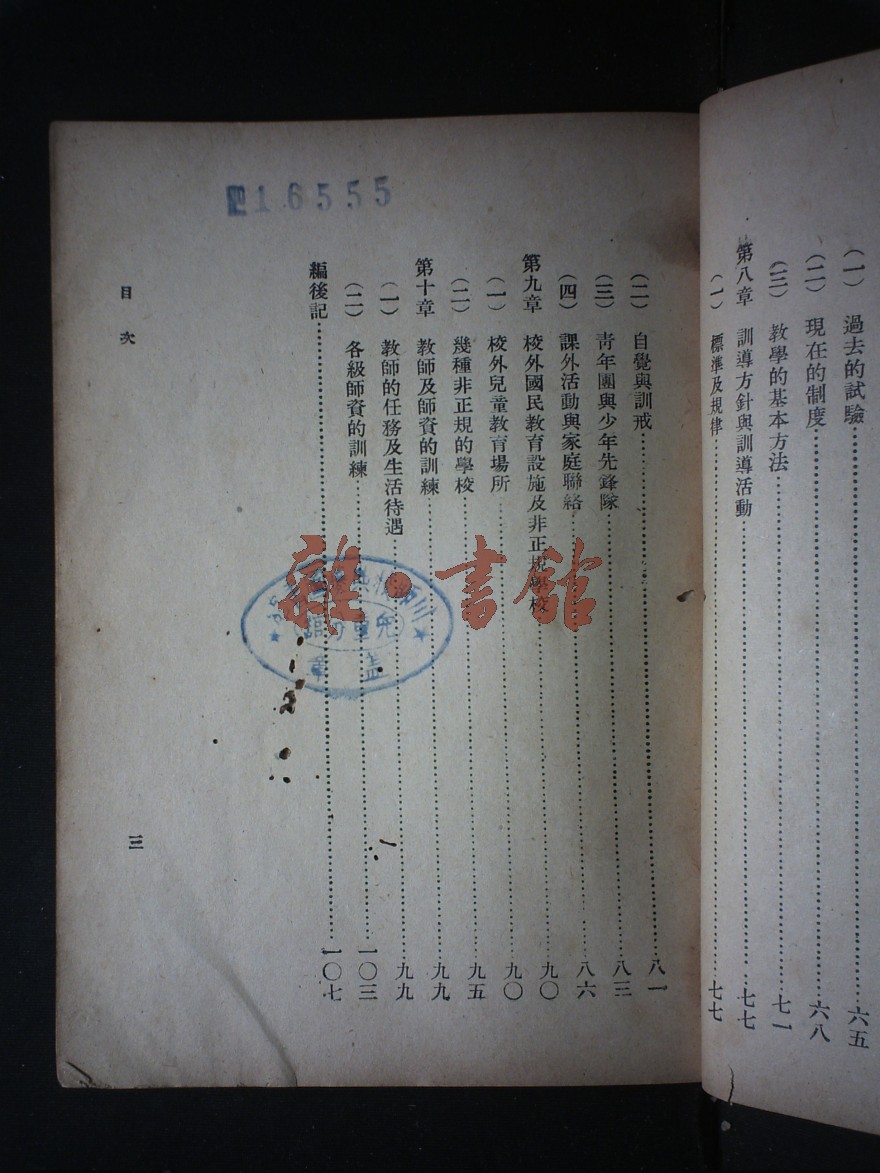 (一) 過去的試驗……六五
(二) 現在的制度……六八
(三) 教學的基本方法……七一
第八章 訓導方針與訓導活動……七七
(一) 標準及規律……七七
(二) 自覺與訓戒……八一
(三) 靑年團與少年先鋒隊……八三
(四) 課外活動與家庭聯絡……八六
第九章 校外國民教育設施及非正規學校……九〇
(一) 校外兒童教育場所……九〇
(二) 幾種非正規的學校……九五
第十章 教師及師資的訓練……九九
(一) 教師的任務及生活待遇……九九
(二) 各級師資的訓練……一〇三
編後記……一〇七
目次
三
16555
雜·書館